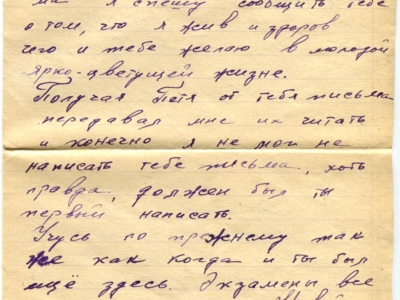 я спешу сообщить тебе
о том, что я жив и здоров
чего и тебе желаю в молодой
ярко-цветущей жизне.
Получая Петя от тебя письма
передавал мне их читать
и конечно я не мог не
написать тебе письма, хоть
правда, должен был ты
первый написать.
Учусь по прежнему так
же как когда и ты был
ещё здесь. Экзамены все